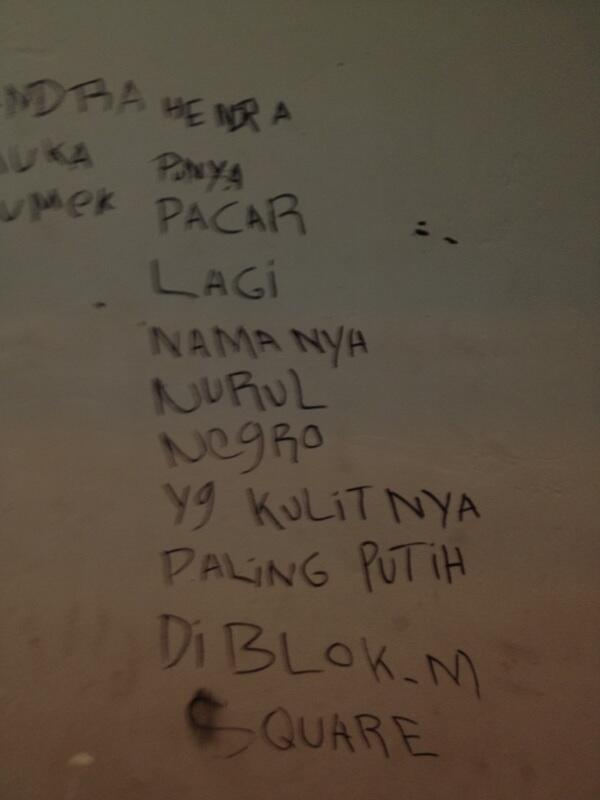 HENDRA
PUNYA
PACAR
LAGi
NAMANYA
NURUL
NegRO
Yg KULiTNYA
PALiNG PUTiH
Di BLOK-M
SQUARE